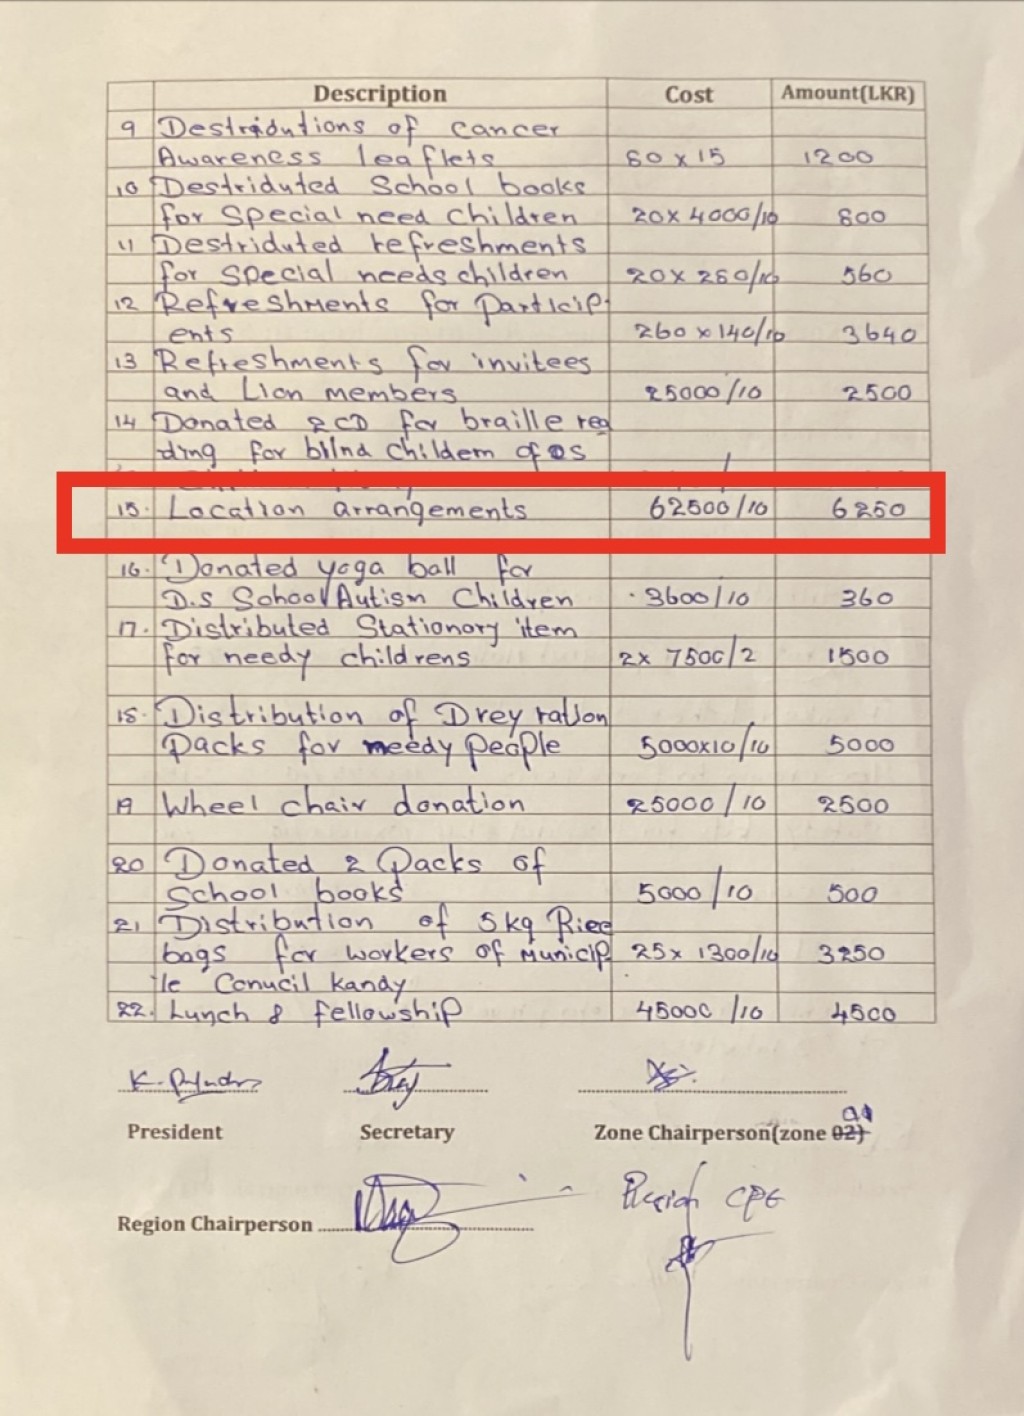 Description Cost Amount(LKR)
9 Destridutions of cancer
Awareness leaflets 80 x 15 1200
10 Destriduted School books
for Special need Children 20x 4000/10 800
11 Destriduted refreshments
for special needs children 20x 280/10 560
12 Refreshments for particip
ents 260 x 140/10 3640
13 Refreshments for invitees
and Lion members 25000/10 2500
14 Donated 2 CD for braille rea
ding for blind Childern of DS
15. Location arrangements 62500/10 6250
16. Donated yoga ball for
D.S School Autism Children 3600/10 360
17. Distributed Stationory item
for needy childrens 2x 7500/2 1500
18. Distribution of Drey ration
Packs for needy people 5000x10/10 5000
19 Wheel chair donation 25000/10 2500
20 Donated 2 Packs of
School books 5000/10 500
21 Distribution of 5kg Rice
bags for workers of Municip 25x 1300/10 3250
le Conucil kandy
22. Lunch & fellowship 45000/10 4500
President Secretary Zone Chairperson(zone 02)
Region Chairperson